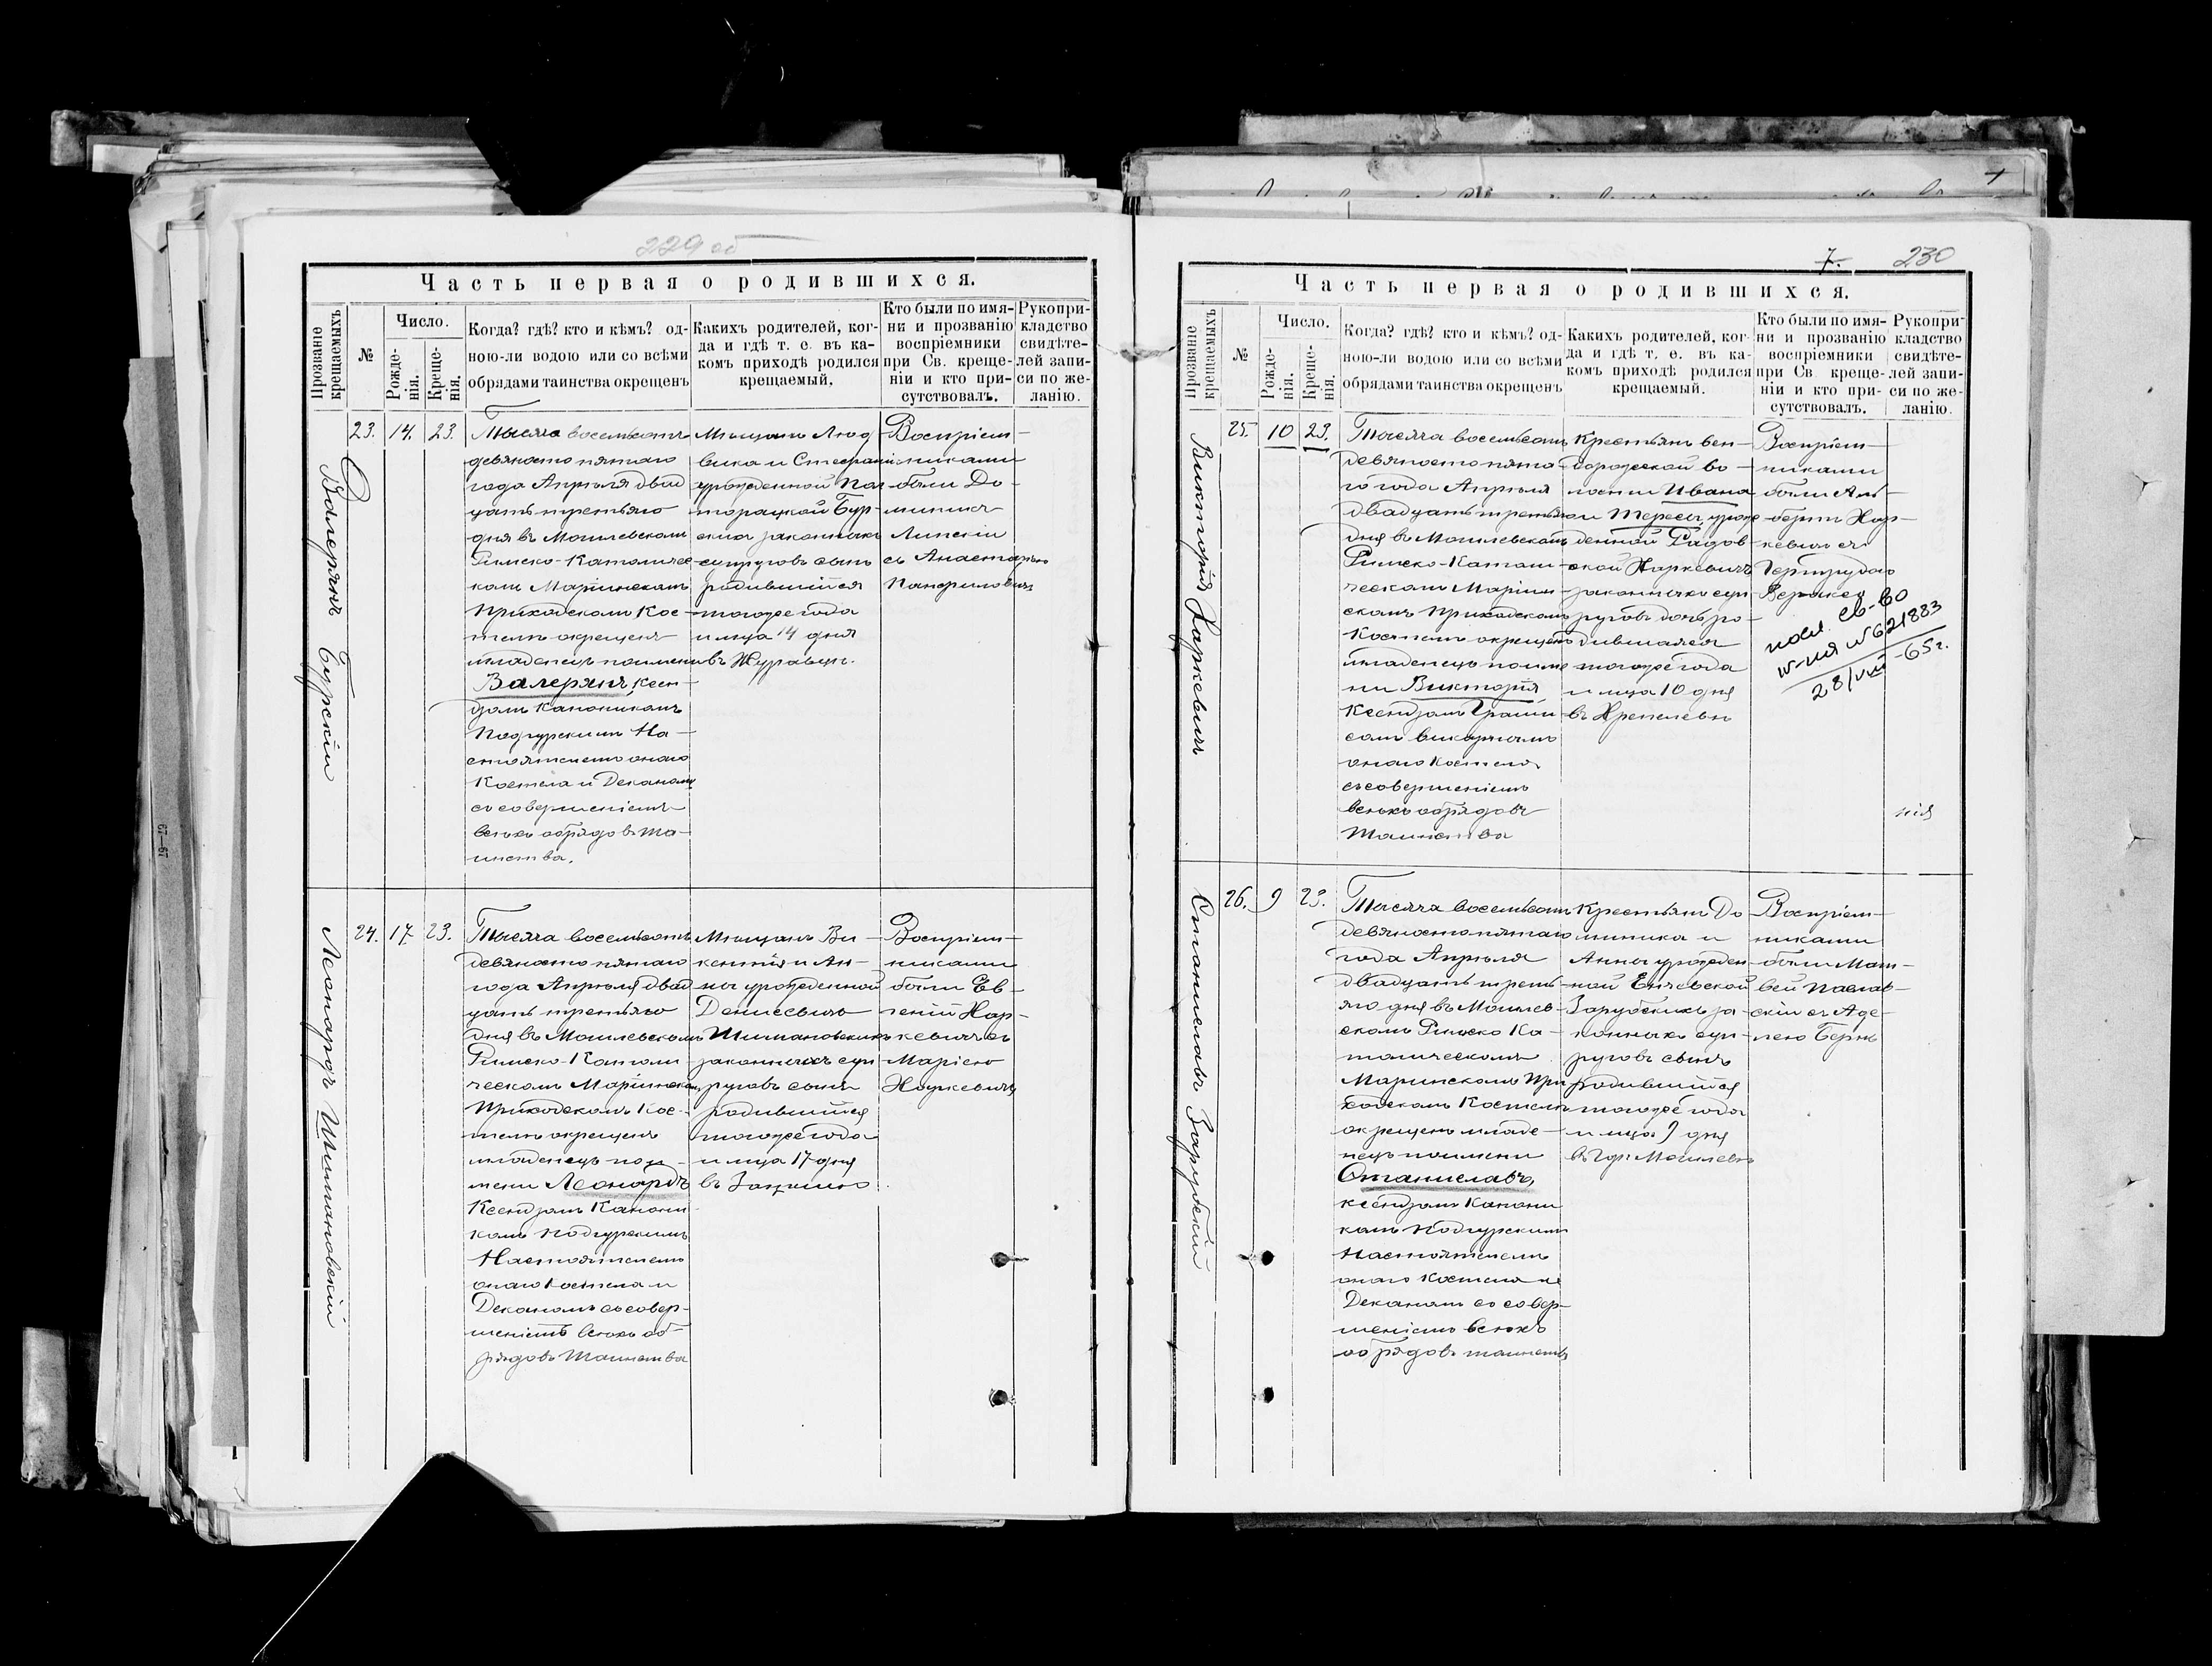 229 об
Часть первая о родившихся.
Прозваніе крещаемыхъ
№
Число.
Рожде-
нія.
Креще-
нія.
Когда? гдѣ? кто и кѣмъ? од-
ною-ли водою или со всѣми
обрядами таинства окрещенъ
Какихъ родителей, ког-
да и гдѣ т. е. въ ка-
комъ приходѣ родился
крещаемый.
Кто были по имя-
ни и прозванію
воспріемники
при Св. креще-
ніи и кто при-
сутствовалъ.
Рукопри-
кладство
свидѣте-
лей запи-
си по же-
ланію.
Валерянъ Бурскій
23. 14. 23.
Тысяча восемьсотъ
девяносто пятаго
года Апрѣля двад
цать третьяго
дня въ Могилевскомъ
Римско-Католичес
комъ Маріинскомъ
Приходскомъ Кос-
телѣ окрещенъ
младенецъ по имени
Валерянъ, Ксен-
дзомъ Каноникомъ
Подгурскимъ На-
стоятелемъ онаго
Костела и Деканомъ
съ совершеніемъ
всѣхъ обрядовъ Та-
инства.
Мѣщанъ Люд
вика и Стефаніи
урожденной
Бур-
скихъ законныхъ
супруговъ сынъ
родившійся
тогоже года
и мца 14 дня
въ Журавцѣ.
Воспріем-
никами
были До-
миникъ
Липскій
съ Анастазіею
Панфиловичъ
Леонардъ Шимановскій
24. 17 23.
Тысяча восемьсотъ
девяносто пятаго
года Апрѣля двад
цать третьяго
дня въ Могилевскомъ
Римско-Католи
ческомъ Маріинскомъ
Приходскомъ Кос-
телѣ окрещенъ
младенецъ по и-
мени Леонардъ
Ксендзомъ Канони
комъ Подгурскимъ
Настоятелемъ
онаго Костела и
Деканомъ съ совер-
шеніемъ всѣхъ об-
рядовъ Таинства
Мѣщанъ Ви-
кентія и Ан-
ны урожденной
Денисевичъ
Шимановскихъ
законныхъ суп
руговъ сынъ
родившійся
тогоже года
и мца 17 дня
въ
Воспріем-
никами
были Ев-
геній Нар-
кевичъ съ
Маріею
Наркевичъ
7. 230
Часть первая о родившихся.
Прозваніе крещаемыхъ
№
Число.
Рожде-
нія.
Креще-
нія.
Когда? гдѣ? кто и кѣмъ? од-
ною-ли водою или со всѣми
обрядами таинства окрещенъ
Какихъ родителей, ког-
да и гдѣ т. е. въ ка-
комъ приходѣ родился
крещаемый.
Кто были по имя-
ни и прозванію
воспріемники
при Св. креще-
ніи и кто при-
сутствовалъ.
Рукопри-
кладство
свидѣте-
лей запи-
си по же-
ланію.
Викторія Харкевичъ
25. 10 23.
Тысяча восемьсотъ
девяносто пята-
го года Апрѣля
двадцать третьяго
дня въ Могилевскомъ
Римско-Катали
ческомъ Маріин-
скомъ Приходскомъ
Костелѣ окрещенъ
младенецъ по име
ни Викторія
Ксендзомъ
викарнымъ
онаго Костела
съ совершеніемъ
всѣхъ обрядовъ
Таинства
Крестьянъ
во-
лости Ивана
и Тересы урож
денной
Харкевичъ
законныхъ суп
руговъ дочь ро-
дившаяся
тогоже года
и мца 10 дня
въ
Воспріем-
никами
были Аль-
бертъ Хар-
кевичъ съ
Гертрудою
пов. св-во
№621883
28/VIII-65г.
нія
Станиславъ Зарубскій
26. 9 23.
Тысяча восемьсотъ
девяносто пятаго
года Апрѣля
двадцать треть-
яго дня въ Могилев-
скомъ Римско Ка-
толическомъ
Маріинскомъ При
ходскомъ Костелѣ
окрещенъ младе-
нецъ по имени
Станиславъ,
Ксендзомъ Канони
комъ Подгурскимъ
Настоятелемъ
онаго Костела и
Деканомъ со совер-
шеніемъ всѣхъ
обрядовъ таинств
Крестьянъ До
миника и
Анны урожден-
ной
Зарубскихъ за-
конныхъ суп-
руговъ сынъ
родившійся
тогоже года
и мца 9 дня
въ гор: Могилевѣ
Воспріем-
никами
были Мат-
вей
съ Аде-
лею